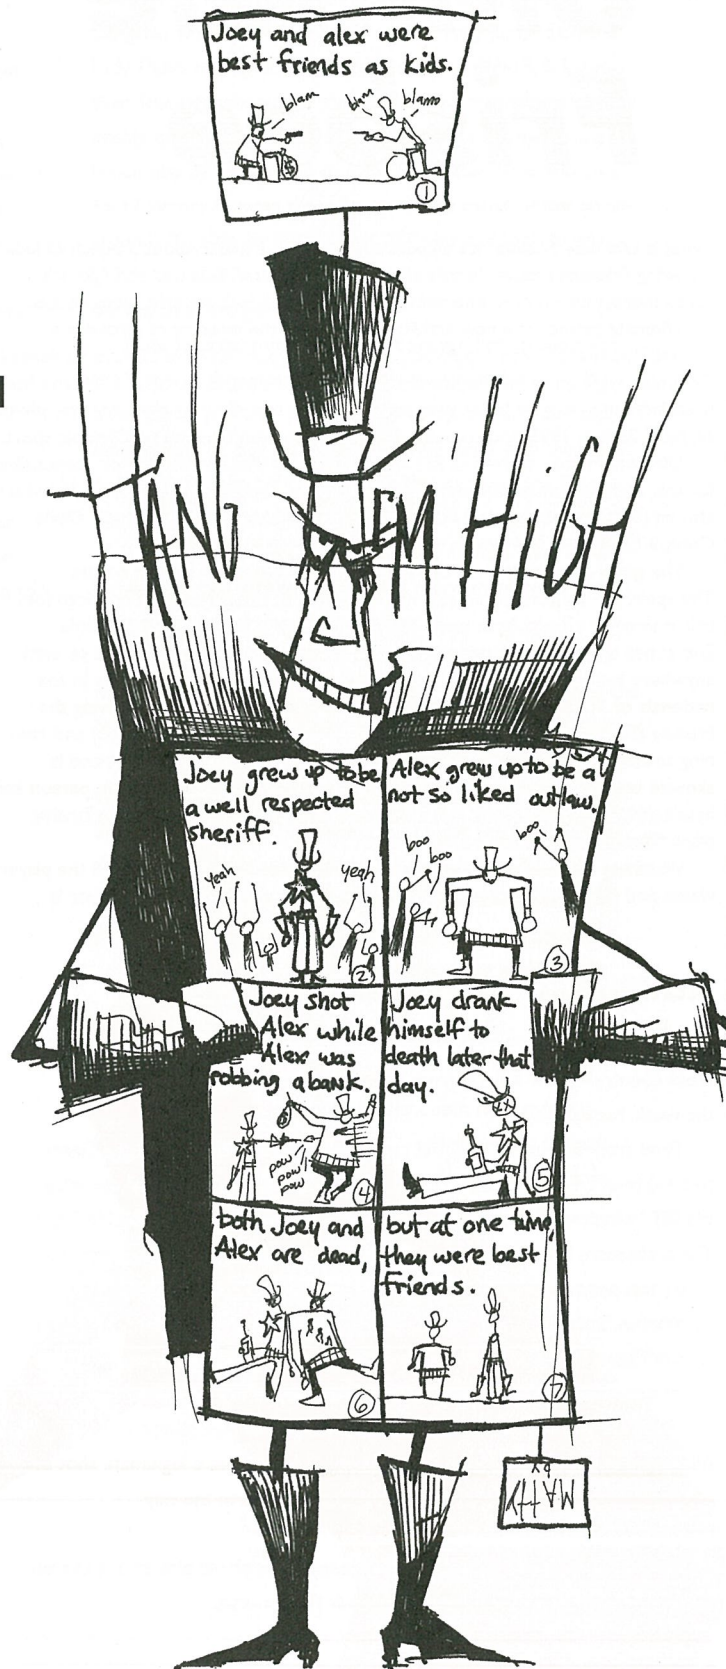 Joey and alex were
best friends as kids.
blam
blam
blamo
$
1
HANG 'EM HiGH
Joey grew up to be
a well respected
sheriff.
yeah
yeah
2
Alex grew up to be a
not so liked outlaw.
boo
boo
boo
3
Joey shot
Alex while
Alex was
robbing a bank.
pow
pow
pow
4
Joey drank
himself to
death later that
day.
5
both Joey and
Alex are dead,
6
but at one time,
they were best
friends.
7
BY
MATTY